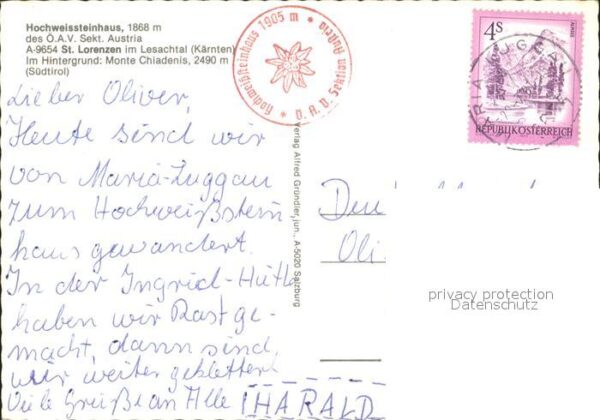 Hochweissteinhaus, 1868 m
des Ö.A.V. Sekt. Austria
A-9654 St. Lorenzen im Lesachtal (Kärnten)
Im Hintergrund: Monte Chiadenis, 2490 m
(Südtirol)
Hochweißsteinhaus 1905 m
Ö. A. V. Sektion Austria
4S
REPUBLIK ÖSTERREICH
MARIA LUGGAU
Lieber Oliver,
Heute sind wir
von Maria-Luggau
zum Hochweißstein
haus gewandert.
In der Ingrid-Hütte
haben wir Rast ge-
macht, dann sind
wir weiter geklettert
Viele Grüße an Alle
HARALD
Verlag Alfred Gründler, jun., A-5020 Salzburg
Oli
privacy protection
Datenschutz